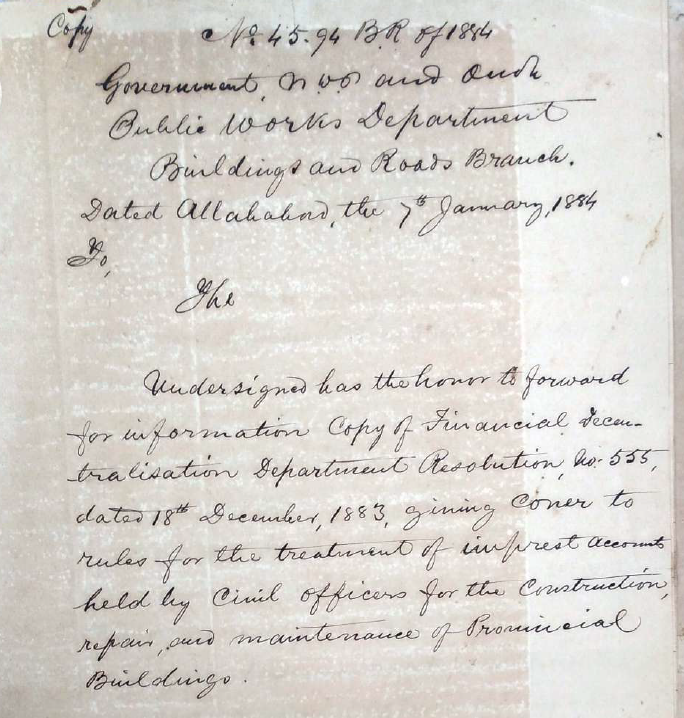 Copy
No. 45.94 B R of 1884
Government, N W P and Oudh
Public Works Department
Buildings and Roads Branch.
Dated Allahabad, the 7th January, 1884
To,
The
Undersigned has the honor to forward
for information Copy of Financial Decen-
tralisation Department Resolution, No. 555,
dated 18th December, 1883, giving cover to
rules for the treatment of imprest accounts
held by Civil officers for the Construction,
repair, and maintenance of Provincial
Buildings.